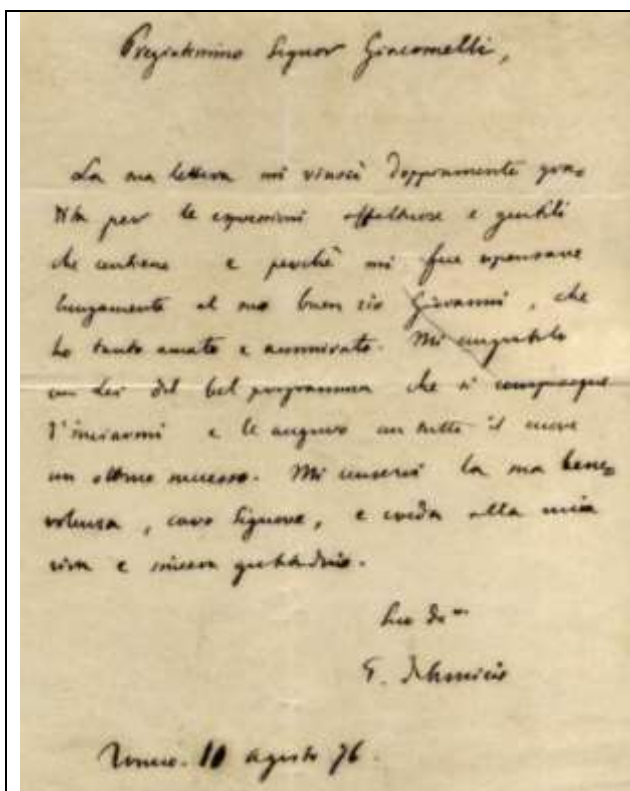 Pregiatissimo Signor Giacomelli,
La sua lettera mi riuscì doppiamente gra=
dita per le espressioni affettuose e gentili
che contiene e perché mi fece ripensare
lungamente al suo buon zio Giovanni, che
ho tanto amato e ammirato. Mi congratulo
con Lei del bel programma che si compiacque
d'inviarmi e le auguro con tutto il cuore
un ottimo successo. Mi conservi la sua bene=
volenza, caro Signore, e creda alla mia
viva e sincera gratitudine.
Suo
E. De Amicis
10 agosto 76.